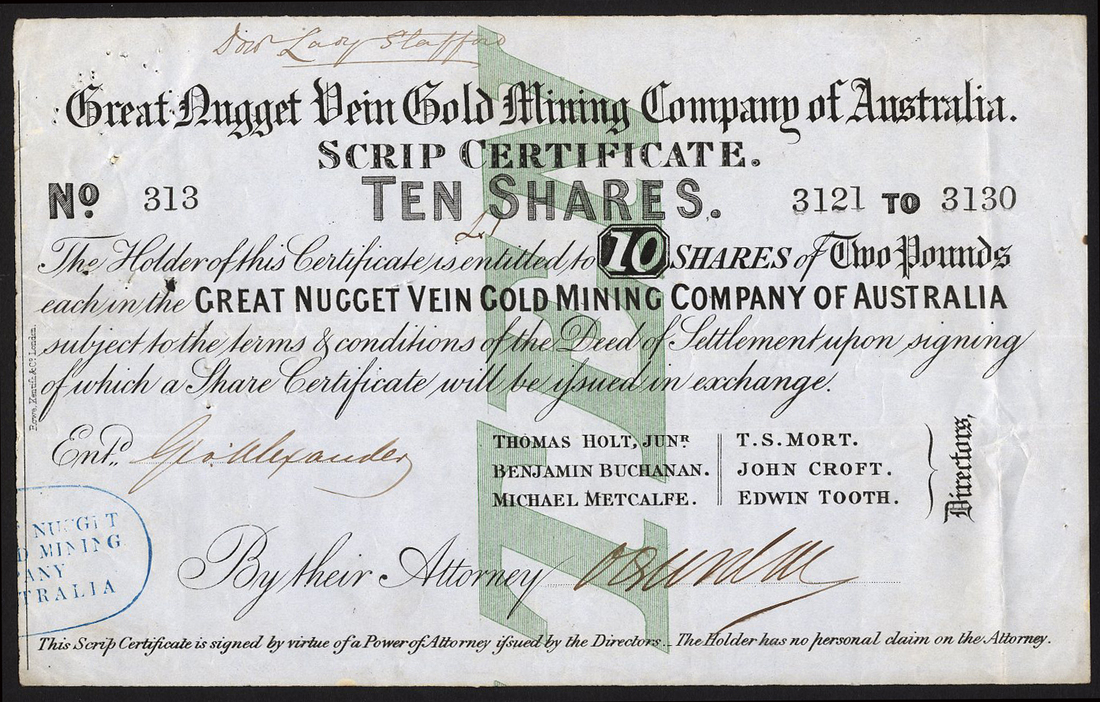 Dow Lady Stafford
Great Nugget Vein Gold Mining Company of Australia.
SCRIP CERTIFICATE.
No 313 TEN SHARES. 3121 TO 3130
£1
The Holder of this Certificate is entitled to 10 SHARES of Two Pounds
each in the GREAT NUGGET VEIN GOLD MINING COMPANY OF AUSTRALIA
subject to the terms & conditions of the Deed of Settlement upon signing
of which a Share Certificate will be issued in exchange.
Entd. Geo Alexander
THOMAS HOLT, JUNR. T. S. MORT.
BENJAMIN BUCHANAN. JOHN CROFT.
MICHAEL METCALFE. EDWIN TOOTH.
Directors,
NUGGET
D MINING
ANY
TRALIA
By their Attorney
This Scrip Certificate is signed by virtue of a Power of Attorney issued by the Directors. _ The Holder has no personal claim on the Attorney.